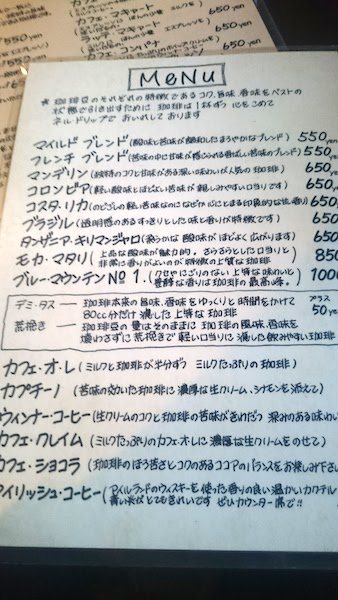 カフェ・マキアート
650yen
550yen
650yen
カフェ・コンパナ
650yen
MENU
★ 珈琲豆のそれぞれの特徴であるコク、旨味、香味をベストの
状態で引き出すために 珈琲は1杯ずつ 心をこめて
ネルドリップで おいれしております
マイルド ブレンド(酸味と苦味が調和したまろやかなブレンド) 550yen
フレンチ ブレンド(苦味の中に甘味が感じられる香ばしい苦味のブレンド) 550yen
マンデリン(独特のコクと甘味がある深い味わいが人気の珈琲) 650
コロンビア(軽い酸味とほどよい苦味が親しみやすい口当りです) 650
コスタ・リカ(のどごしの軽い苦味なのになぜか心にとまる印象的な位香り) 650
ブラジル(透明感のあるすっきりとした味と香りが特徴です) 650
タンザニア・キリマンジャロ(柔らかな酸味がほどよく広がります) 650
モカ・マタリ(上品な酸味が魅力的。さらさらとした口当りと
非常に香りがよいのが特徴の上質な珈琲 850
ブルー・マウンテンNo1.(クセやにごりのない上品な味わいと
豊醇な香りは珈琲の最高峰。 1000
デミ・タス ― 珈琲本来の旨味、香味をゆっくりと時間をかけて
80cc分だけ濃した上等な珈琲
プラス
50yen
荒挽き ― 珈琲豆の量はそのままに珈琲の風味、香味を
壊わさずに荒挽きで軽い口当りに濃した飲みやすい珈琲
カフェ・オ・レ(ミルクと珈琲が半分ずつ ミルクたっぷりの珈琲)
カプチーノ(苦味の効いた珈琲に濃厚な生クリーム、シナモンを添えて)
ウィンナー・コーヒー(生クリームのコクと珈琲の苦味がきわだつ 深みのある味わい
カフェ・クレイム(ミルクたっぷりのカフェ・オレに濃厚な生クリームをのせて)
カフェ・ショコラ(珈琲のほろ苦さとコクのあるココアのバランスをお楽しみ下さい
アイリッシュ・コーヒー(アイルランドのウィスキーを使った香りの良い温かいカクテル
青い炎がとてもきれいです ぜひカウンター席で!!